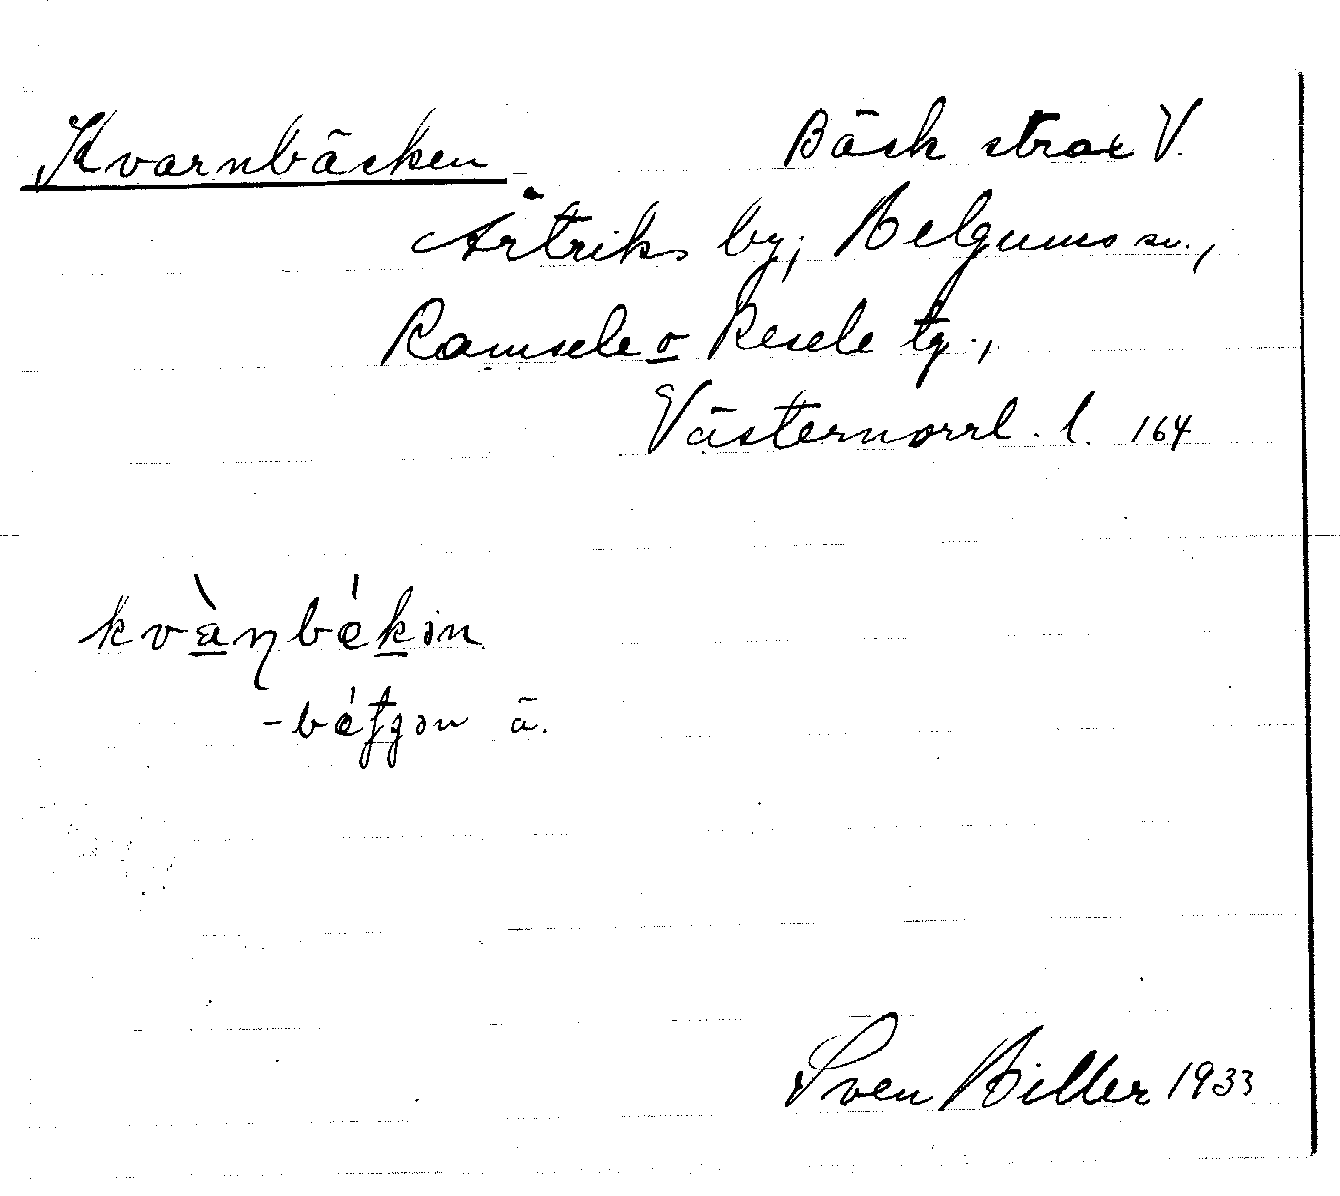 Kvarnbäcken Bäck strax V.
Ärtriks by, Helgums sn.,
Ramsele o Resele tg.,
Västernorrl. l. 164
kvàɳbékən
ä.
Sven Hiller 1933